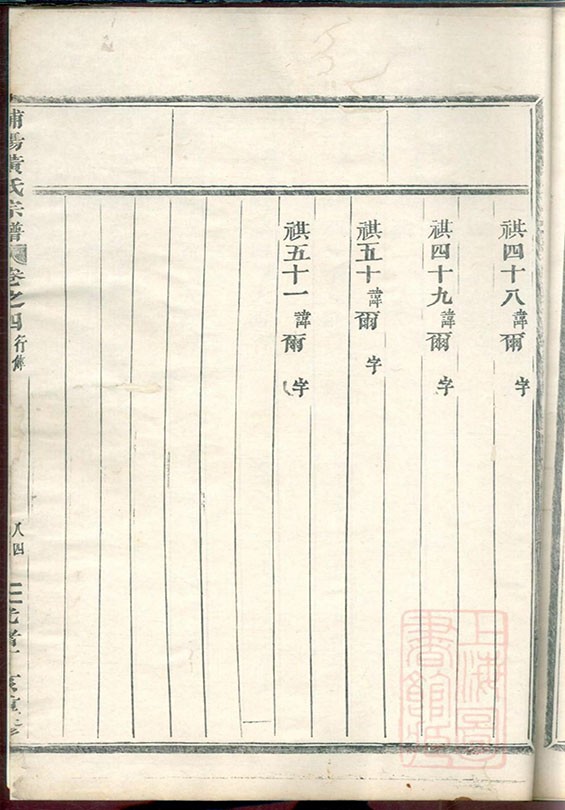 祺四十八諱爾 字
祺四十九諱爾 字
祺五十諱爾 字
祺五十一諱爾 字
浦陽黃氏宗譜 卷之四 行傳
八四
上海圖書館藏